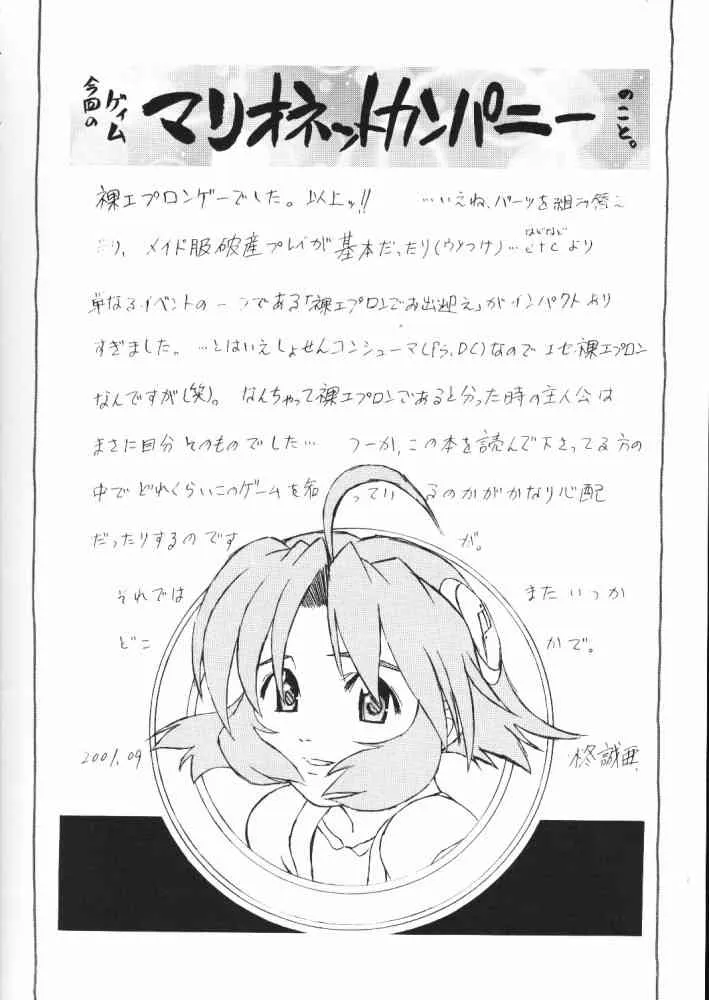 今回の
ゲイム
マリオネットカンパニー
のこと。
裸エプロンゲーでした。以上ッ!! …いえね、パーツを組み替え
たり、メイド服破産プレイが基本だったり(ウソつけ)…etcより
などなど
単なるイベントの一つである「裸エプロンでお出迎え」がインパクトあり
すぎました。…とはいえしょせんコンシューマ(PS,DC)なのでエセ裸エプロン
なんですが(笑)。なんちゃって裸エプロンであると分った時の主人公は
まさに自分そのものでした… つーか、この本を読んで下さってる方の
中でどれくらいこのゲームを知っているのかがかなり心配
だったりするのですが。
それではまたいつか
どこかで。
2001.09
柊誠亜.